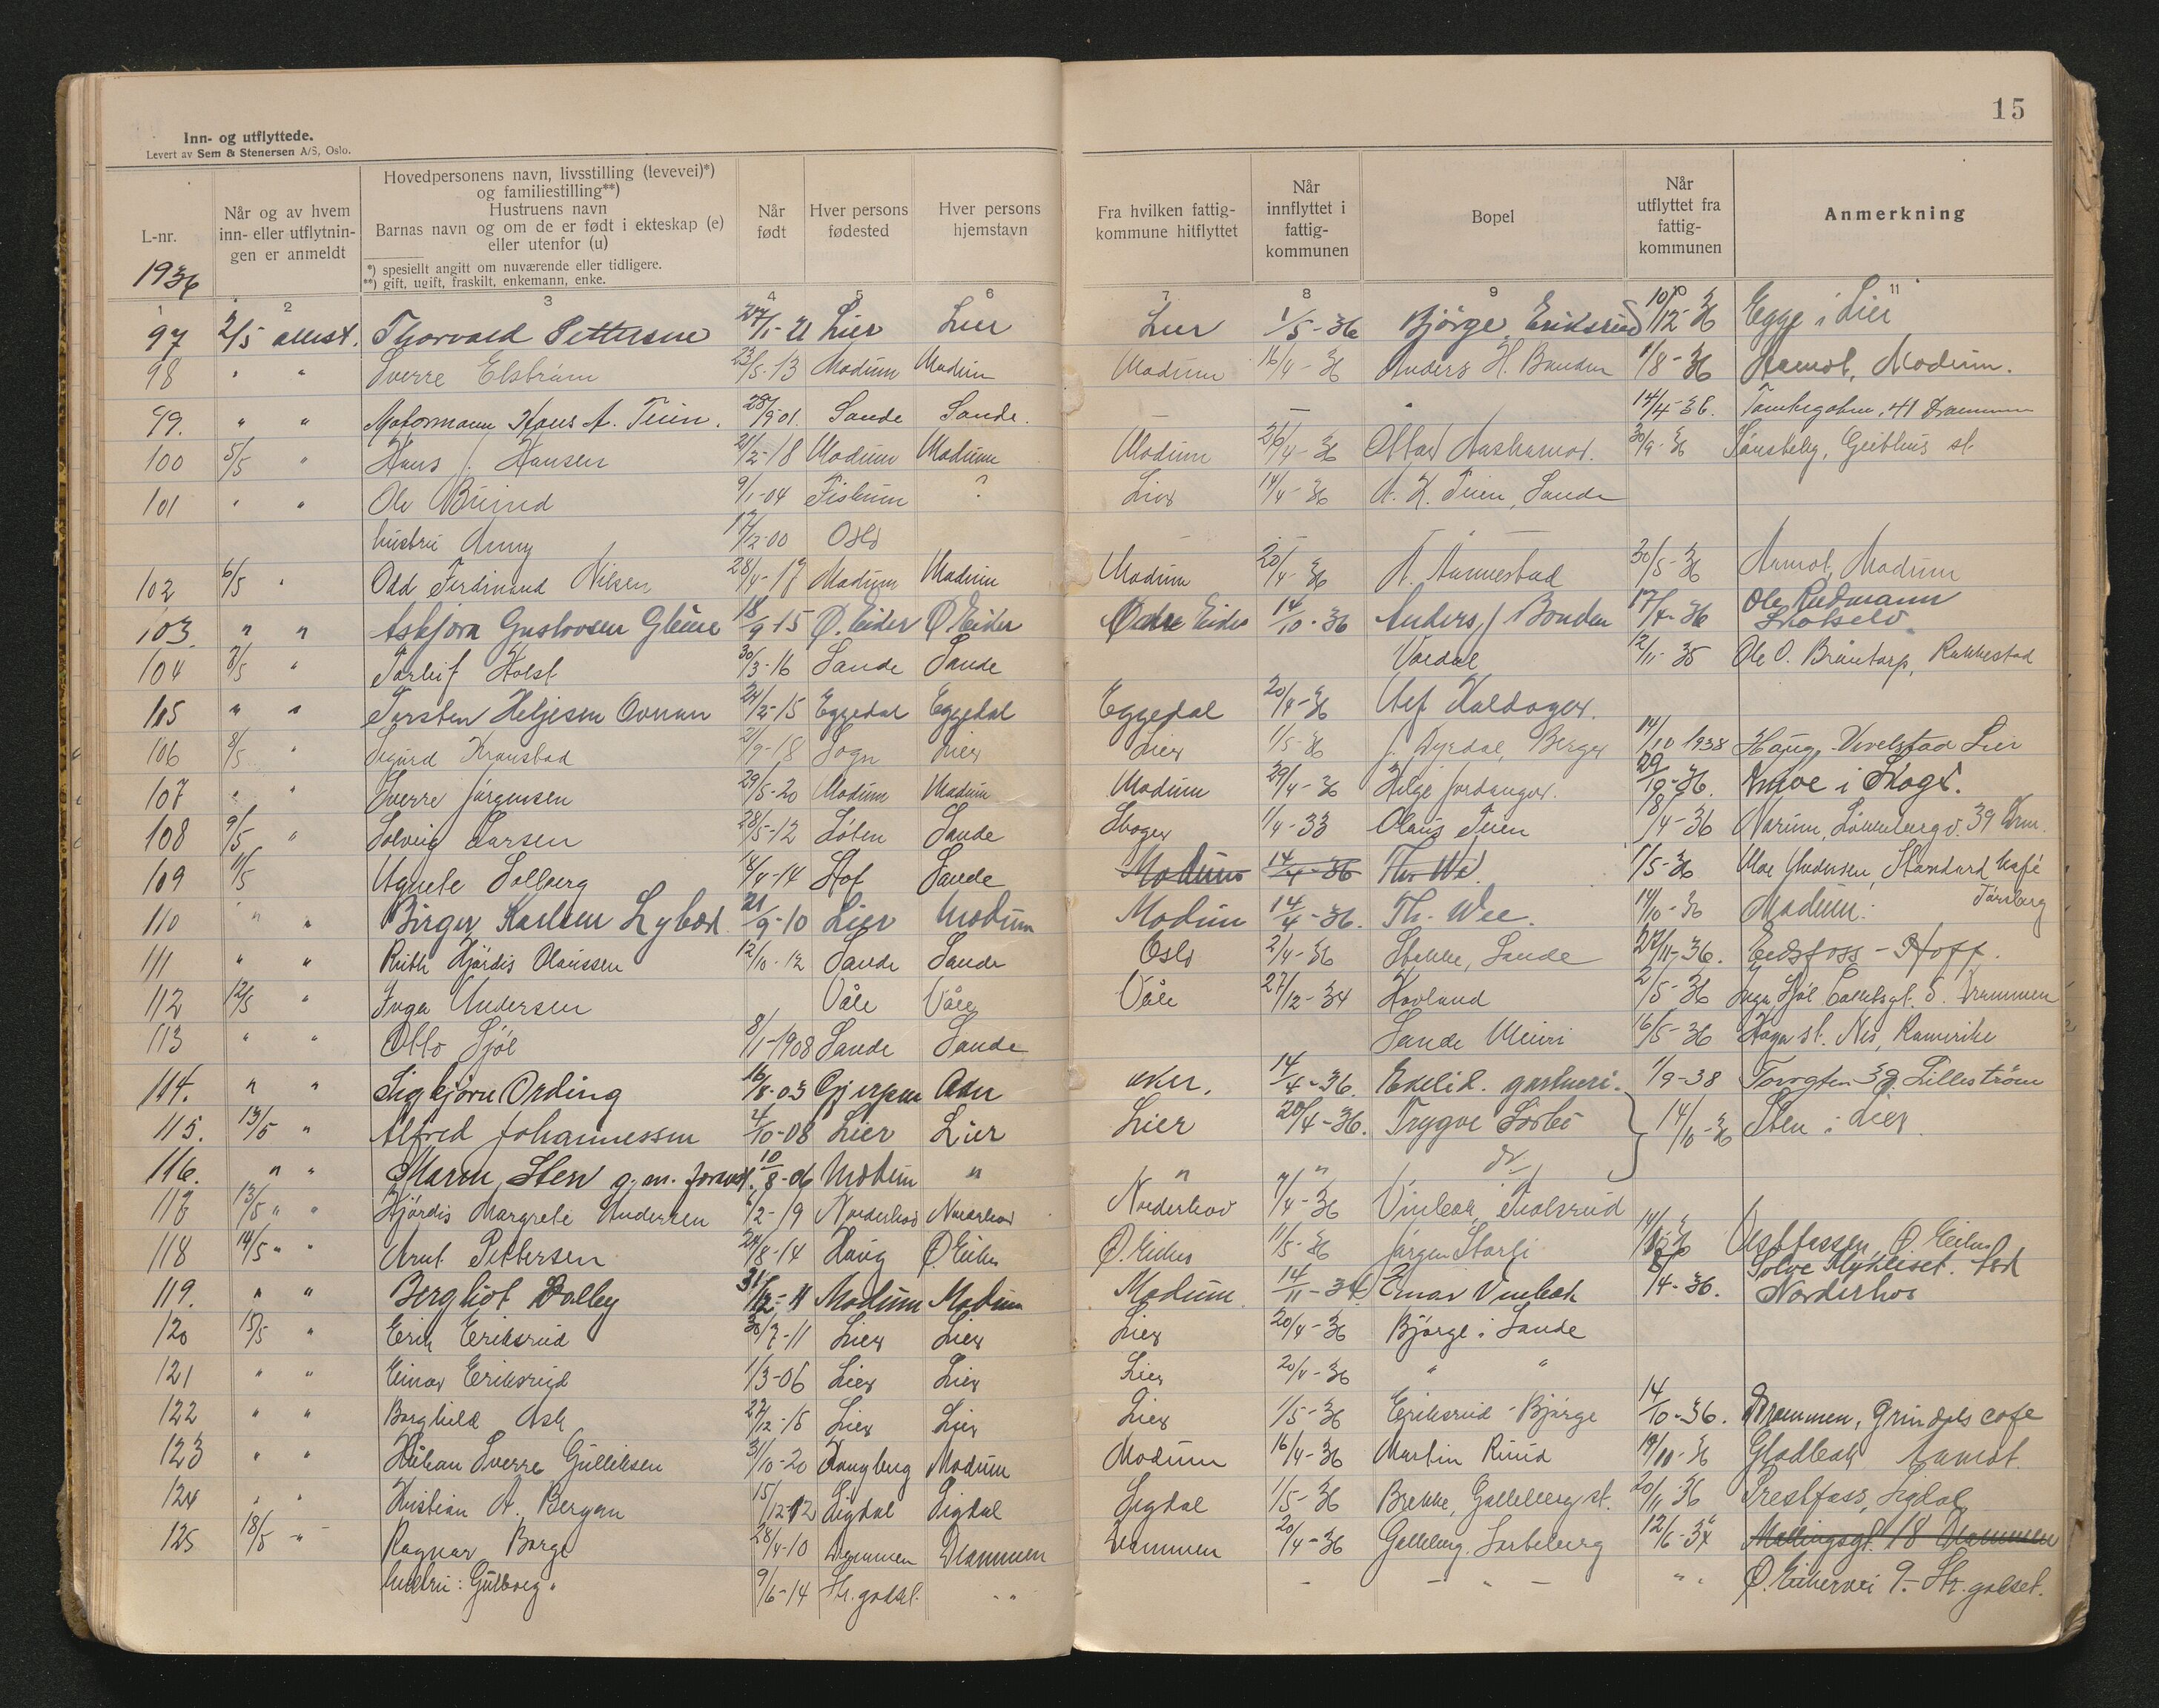 15
Inn- og utflyttede.
Levert av Sem & Stenersen A/S, Oslo.
L-nr.
Når og av hvem inn- eller utflytnin-gen er anmeldt
Hovedpersonens navn, livsstilling (levevei)*)
og familiestilling**)
Hustruens navn
Barnas navn og om de er født i ekteskap (e)
eller utenfor (u)
*) spesiellt angitt om nuværende eller tidligere.
**) gift, ugift, fraskilt, enkemann, enke.
Når født
Hver persons fødested
Hver persons hjemstavn
Fra hvilken fattig-kommune hitflyttet
Når innflyttet i fattig-kommunen
Bopel
Når utflyttet fra fattig-kommunen
Anmerkning
1936
1 2 3 4 5 6 7 8 9 10 11
97 2/5 Thorvald Pettersen 27/1-21 Lier Lier Lier 1/5-36 Bjørge, Eriksrud 10/12-36 Egge i Lier
98 " " Sverre Elstrøm 23/5-13 Modum Modum Modum 16/4-36 Anders H. Bonden 1/8-36 Aamot, Modum.
99. " " Motormann Hans A. Teien. 28/9-01. Sande Sande. — — " 14/4-36. 41 Drammen
100 5/5 " Hans J. Hansen 21/2-18 Modum Modum Modum 26/4-36 Ottar 30/9-36 Geithus st.
101 " " Ole 9/1-04 Fiskum ? Lier 14/4-36 A. K. Teien, Sande
hustru Anny 17/2-00 Oslo
102 6/5 " Odd Ferdinand Nilsen 28/4-17 Modum Modum Modum 20/4-36 A. Aannestad 30/5-36 Aamot, Modum
103. " " Asbjørn Gustovsen 18/9-15 Ø. Eiker Ø. Eiker Øvre Eiker 14/10-36 Anders J Bonden 17/4-36 Ole Rudmann Skotselv
104 7/5 " Torleif Holst 30/3-16 Sande Sande 2/11-35 Ole O. Rakkestad
105 " " Torsten Heljesen 24/2-15 Eggedal Eggedal Eggedal 20/4-36
106 8/5 " Sigurd 21/9-18 Sogn Lier Lier 1/5-36 J. Dyrdal, Berger 14/10 1938 Haug Lier
107 " " Sverre Jørgensen 29/5-20 Modum Modum Modum 29/4-36 Helge 29/10-36. i Skoger.
108 9/5 " Solveig Larsen 28/5-12 Løten Sande Skoger 1/4-33 Olaus Teien 18/4-36 39 Drm.
109 11/5 Agnete Solberg 14/4-14 Hof Sande Modum 14/4-36 1/5-36 Standard Kafé Tønsberg
110 " " Birger Karlsen 21/9-10 Lier Modum Modum 14/4-36. Th. Wee. 14/10-36 Modum.
111 " " Ruth Hjørdis Olaussen 12/10-12 Sande Sande Oslo 2/4-36 Stokke, Sande 27/11-36. Eidsfoss - Hoff.
112 12/5 " Inga Andersen Våle Våle Våle 27/12-34 Hovland 2/5-36 Drammen
113 " " Otto Sjøl 8/1-1908 Sande Sande Sande Meieri 16/5-36 Haga st. Nes, Romerike
114. " " Sigbjørn Ording 16/8-03 Gjerpen Aker Aker. 14/4-36. gartneri. 1/9-38 Torvgten 39 Lillestrøm
115. 13/5 " Alfred Johannessen 4/10-08 Lier Lier Lier 20/4-36. Trygve 14/10-36 Sten i Lier
116. " " Maren Sten g.m. 10/8-06 Modum " " " do
117 13/5 " " Hjørdis Margrete Andersen 6/2-19 Norderhov Norderhov Norderhov 7/4-36
118 14/5 " " Arnt Pettersen 24/8-14 Haug Ø Eiker Ø. Eiker 11/5-36 Jørgen Vestfossen, Ø Eiker
119. " " Bergliot Dalby 31/12-11 Modum Modum Modum 14/11-34 Einar 8/4-36. Norderhov
120 15/5 " Erik Eriksrud 30/7-11 Lier Lier Lier 20/4-36 Bjørge i Sande
121 " " Einar Eriksrud 1/3-06 Lier Lier Lier 20/4-36 " "
122 " " Borghild Ask 27/12-15 Lier Lier Lier 1/5-36 Eriksrud - Bjørge 14/10-36. Drammen, Grindals cafe
123 " " Håkan Sverre Gulliksen 31/10-20 Modum Modum 16/4-36 Martin Ruud 14/10-36 Aamot.
124 " " Kristian A. Bergan 15/12-12 Sigdal Sigdal Sigdal 1/5-36 Brekke, Galleberg st. 20/11-36 Prestfoss, Sigdal
125 18/5 -"- Ragnar Borge 28/4-10 Drammen Drammen Drammen 20/4-36 Galleberg. 12/6-37 18 Drammen
hustru: Gudborg " 9/6-14 Str. godset. " " - - " - " " Ø. Eikervei 9. - Str. godset.